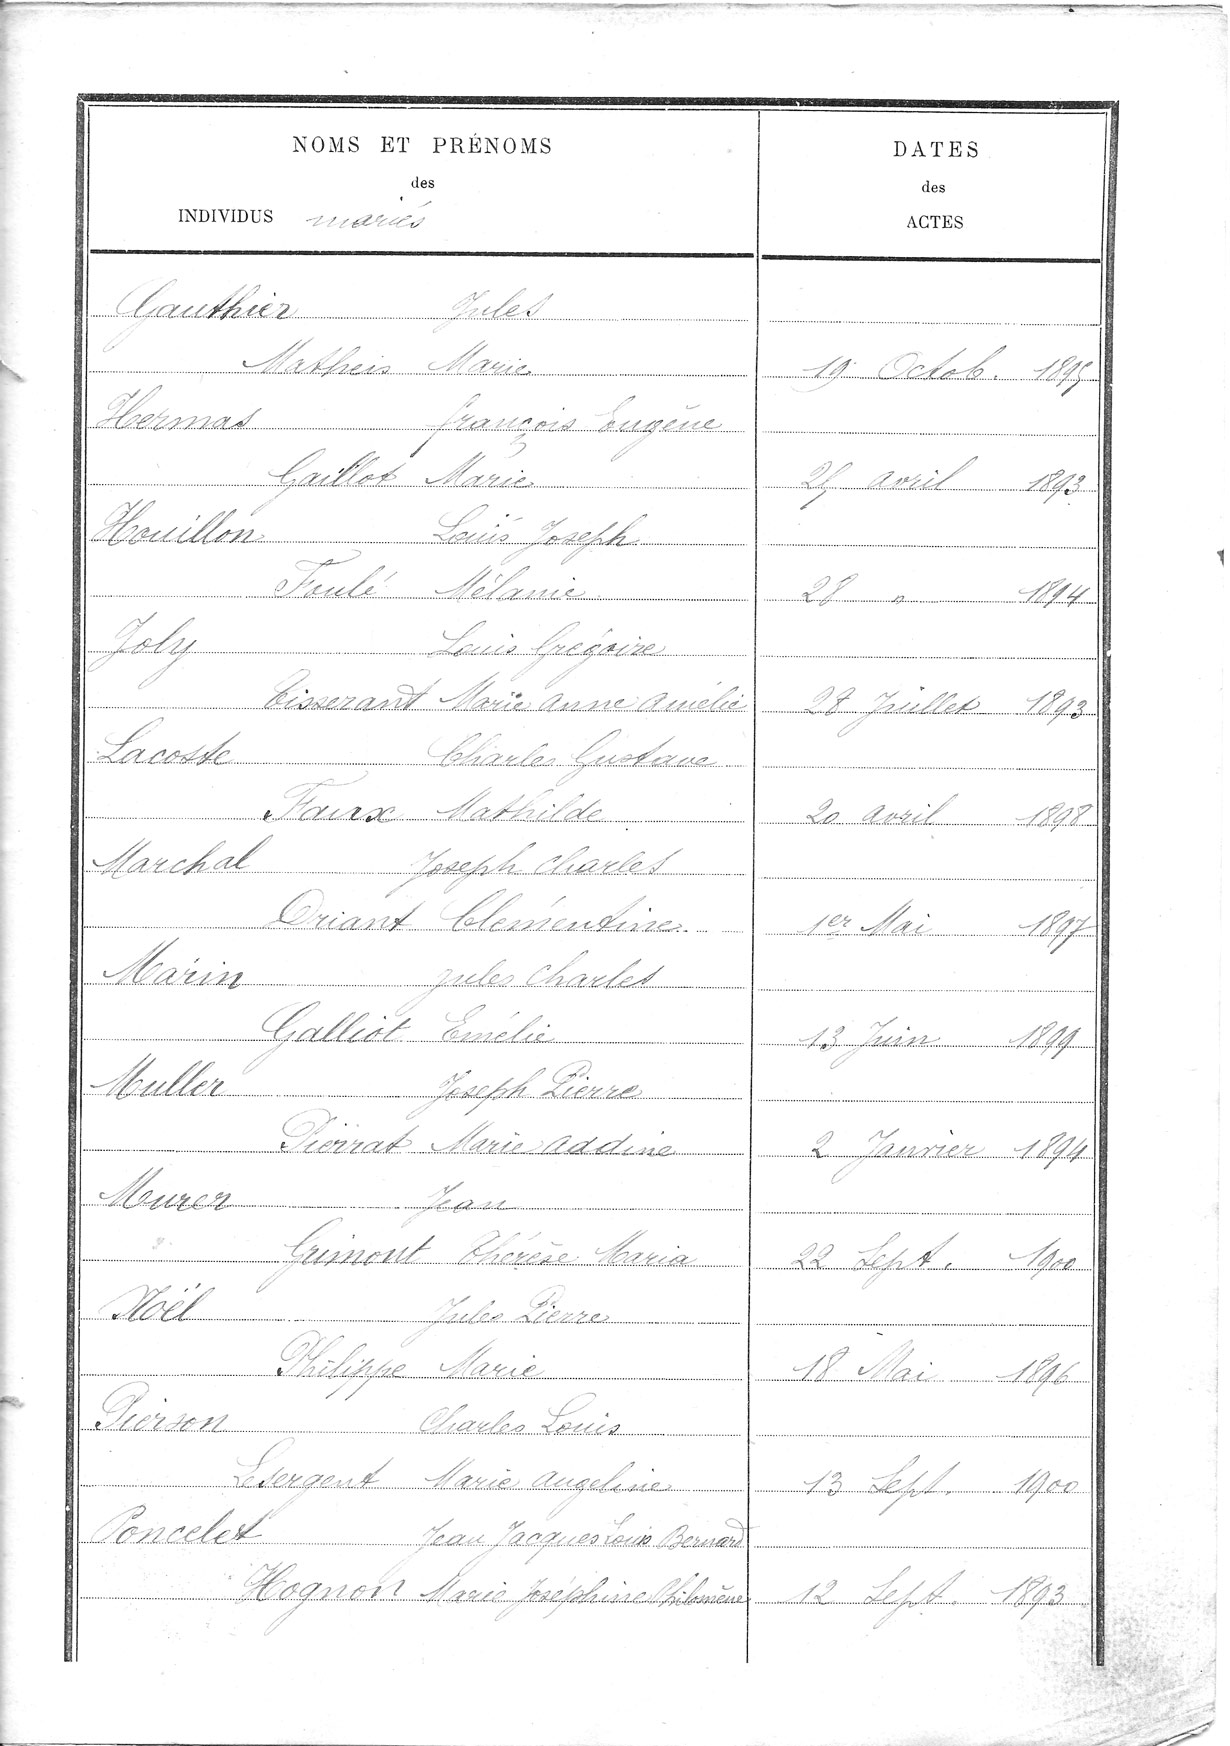 NOMS ET PRÉNOMS
des
INDIVIDUS mariés
DATES
des
ACTES
Gauthier Jules
Matheis Marie 19 Octob. 1895
Hermas françois Eugène
Gaillot Marie 25 avril 1893
Houillon Louis Joseph
Foulé Mélanie 28 " 1894
Joly Louis Grégoire
Tisserant Marie Anne Amélie 28 Juillet 1893
Lacoste Charles Gustave
Faux Mathilde 20 avril 1898
Marchal Joseph Charles
Driant Clémentine 1er Mai 1897
Marin Jules Charles
Galliot Emélie 13 Juin 1899
Muller Joseph Pierre
Pierrat Marie addine 2 Janvier 1894
Murer Jean
Grimont Thérèse Maria 22 Sept. 1900
Noël Jules Pierre
Philippe Marie 18 Mai 1896
Pierson Charles Louis
Lesergent Marie Angeline 13 Sept. 1900
Poncelet Jean Jacques Louis Bernard
Hognon Marie Joséphine Philomène 12 Sept. 1893